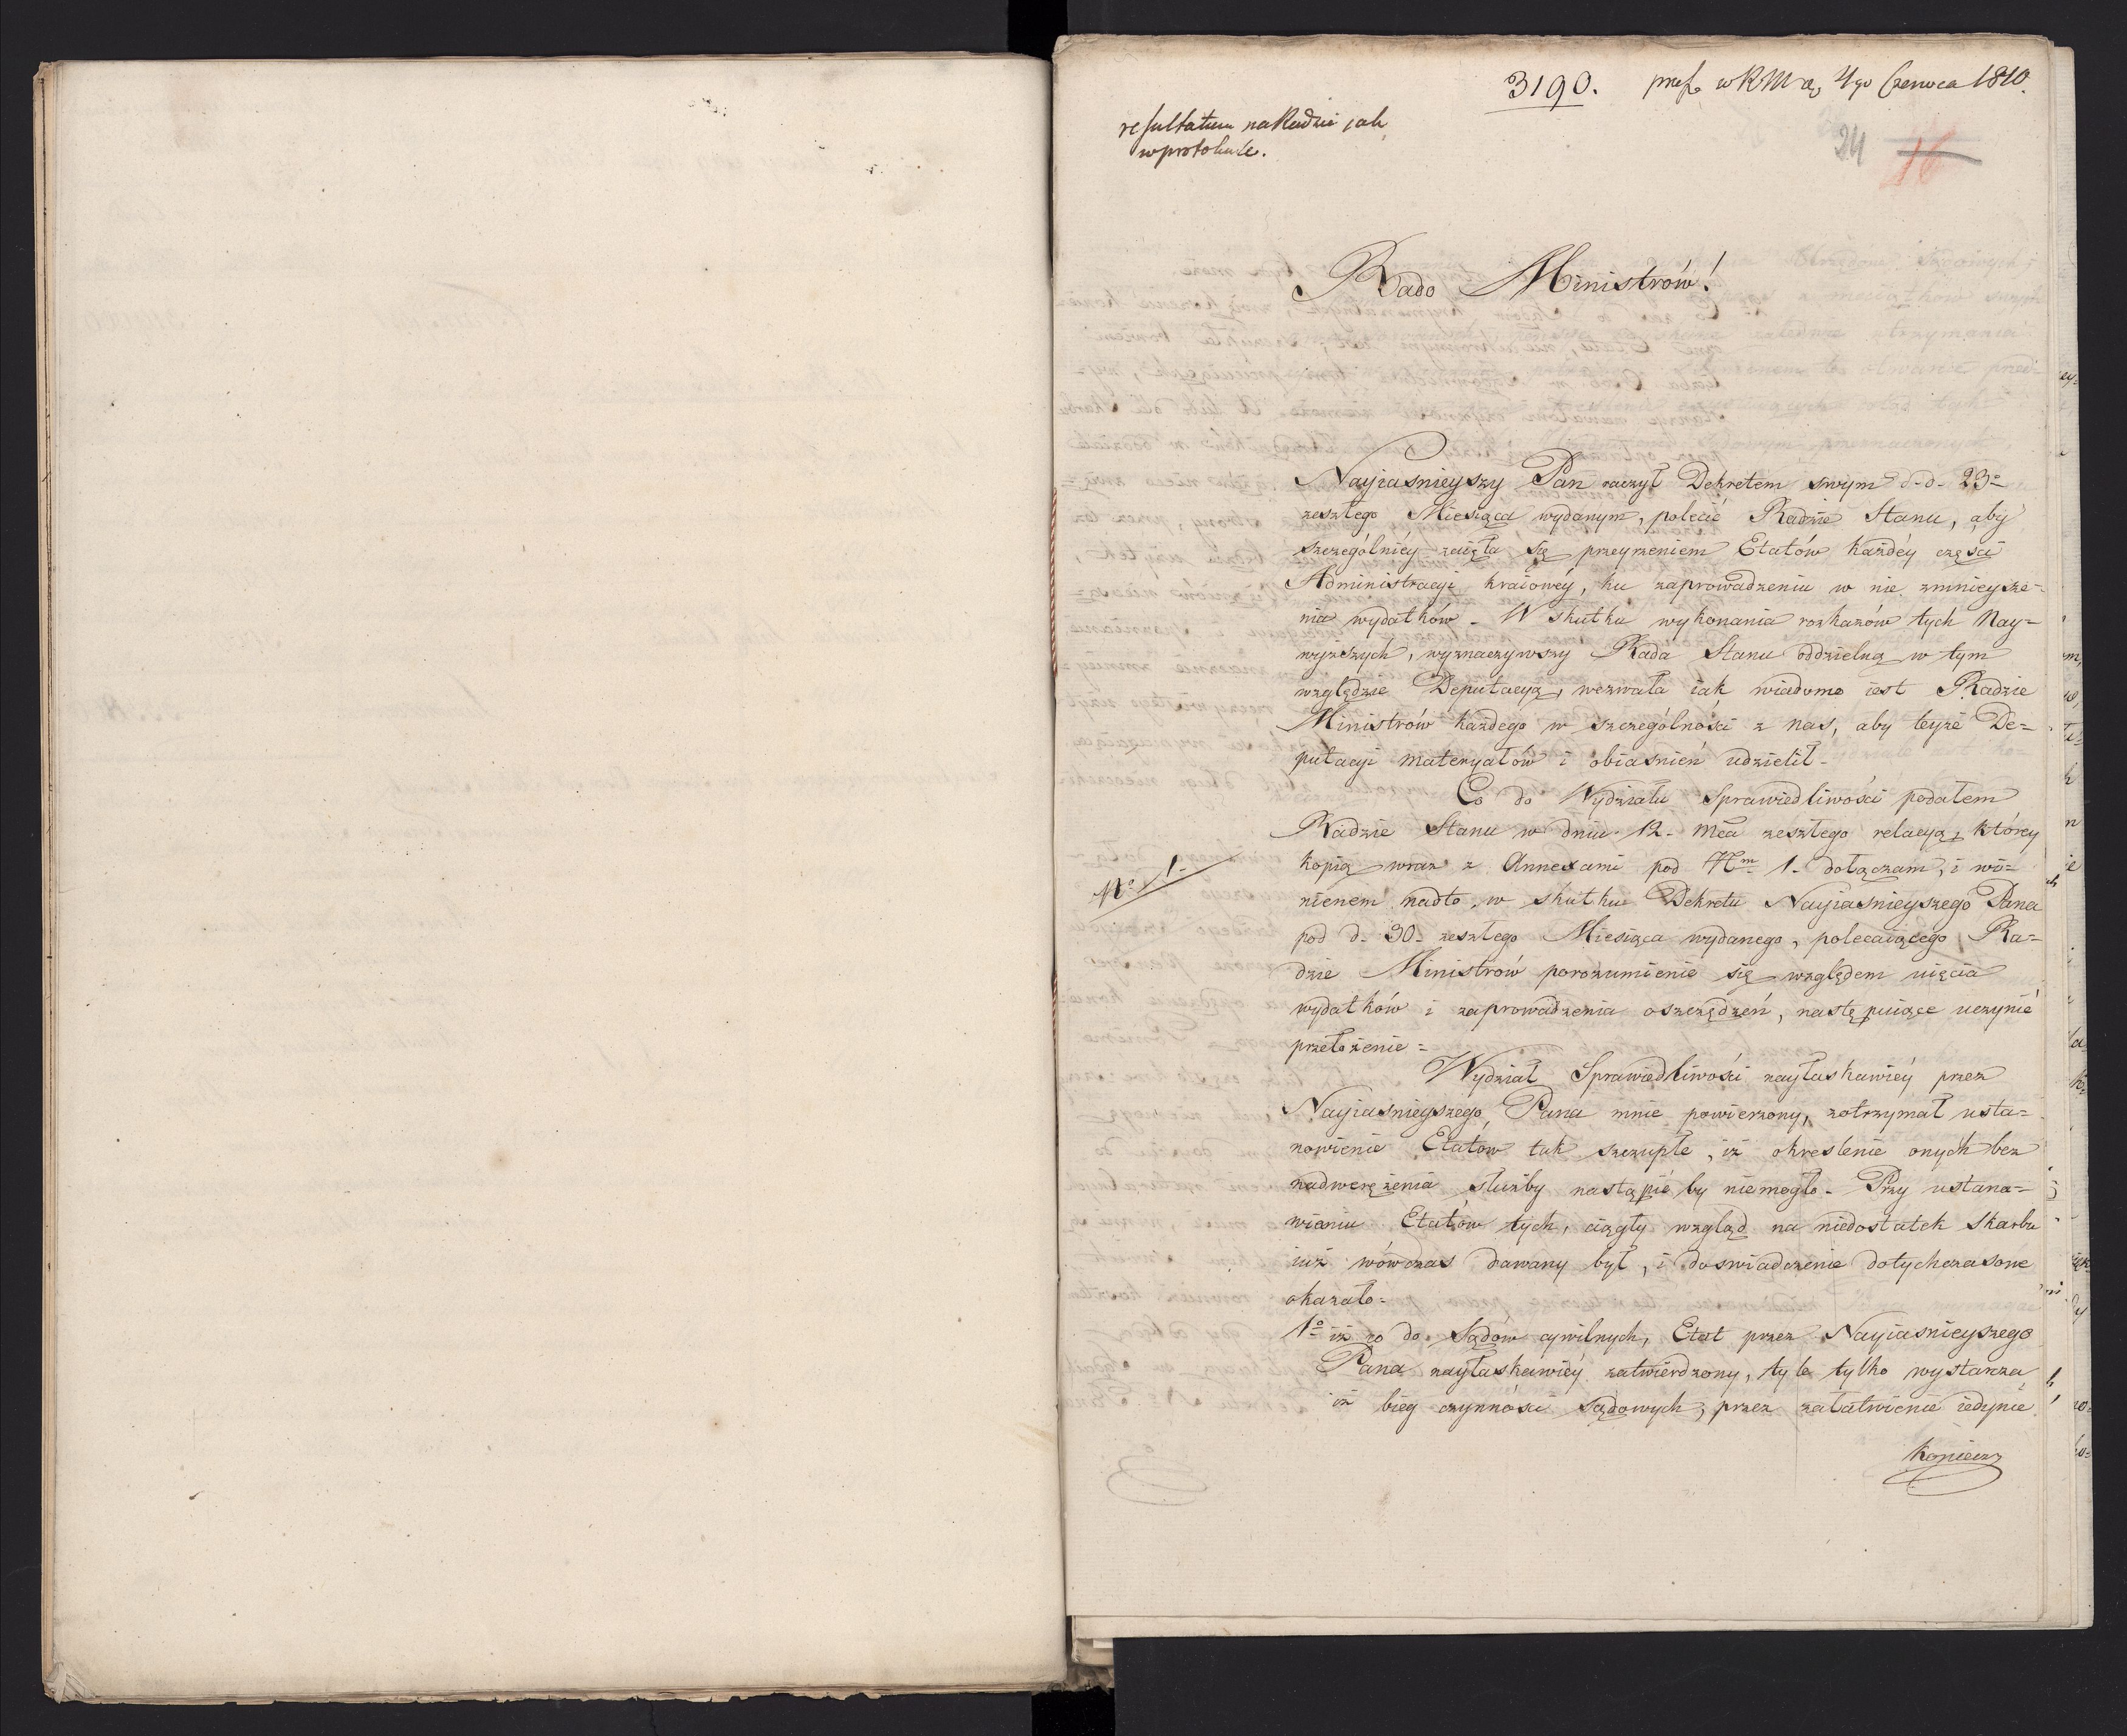 3190. 4go Czerwca 1810.
resultatum na Radzie jak
w protokule.
24 16
Rado Ministrów!
Nayiasnieyszy Pan raczył Dekretem swym d. d. 23o
zeszłego Miesiąca wydanym, polecić Radzie Stanu, aby
szczególniey zaięła się przeyrzeniem Etatów każdey części
Administracyi kraiowey, ku zaprowadzeniu w nie zmnieysze=
nia wydatków - W skutku wykonania rozkazów tych Nay=
wyższych, wyznaczywszy Rada Stanu oddzielną w tym
względzie Deputacyą, wezwała iak wiadomo iest Radzie
Ministrów każdego w szczególności z nas, aby teyże De=
putacyi materyałów i obiasnień udzielił -
Co do Wydziału Sprawiedliwości podałem
Radzie Stanu w dniu 12. mca zeszłego relacyą, którey
No 1.
kopią wraz z Annexami pod Nm 1. dołączam, i wi=
nienem nadto, w skutku Dekretu Nayiasnieyszego Pana
pod d. 30. zeszłego Miesiąca wydanego, polecaiącego Ra=
dzie Ministrów porozumienie się względem uięcia
wydatków i zaprowadzenia oszczędzeń, następuiące uczynić
przełożenie =
Wydział Sprawiedliwości nayłaskawiéy przez
Nayiasnieyszego Pana mnie powierzony, otrzymał usta=
nowienie Etatów tak szczupłe, iż okreslenie onych bez
nadwerężenia służby nastąpić by niemogło - Przy ustana=
wianiu Etatów tych, ciągły wzgląd na niedostatek Skarbu
iuż wówczas dawany był, i doswiadczenie dotychczasowe
okazało -
1o iż co do Sądów cywilnych, Etat przez Nayiasnieyszego
Pana nayłaskawiéy zatwierdzony, tyle tylko wystarcza
iż bieg czynności sądowych, przez załatwienie iedynie
koniecz